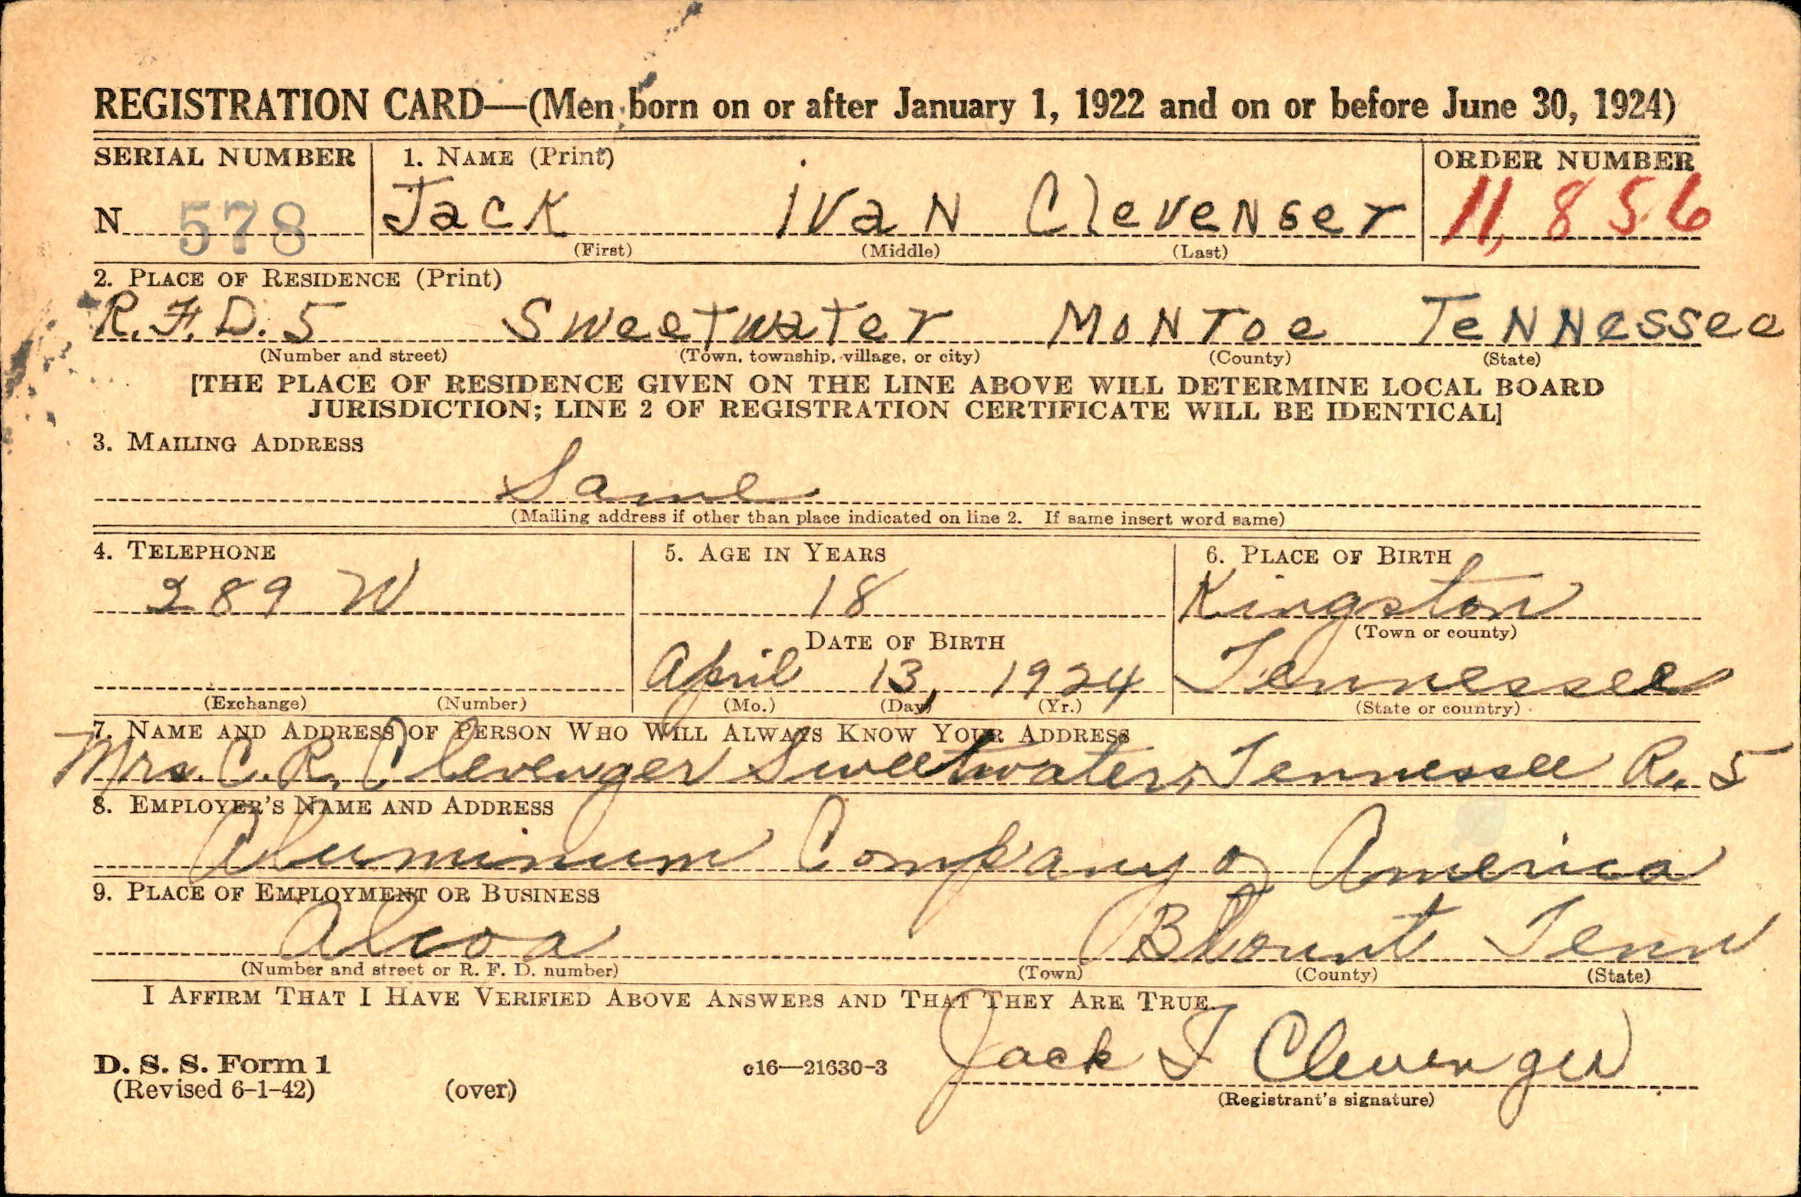 REGISTRATION CARD—(Men born on or after January 1, 1922 and on or before June 30, 1924)
SERIAL NUMBER 1. NAME (Print) ORDER NUMBER
N 578 Jack Ivan Clevenger 11,856
(First) (Middle) (Last)
2. PLACE OF RESIDENCE (Print)
R.F.D. 5 Sweetwater Monroe Tennessee
(Number and street) (Town, township, village, or city) (County) (State)
[THE PLACE OF RESIDENCE GIVEN ON THE LINE ABOVE WILL DETERMINE LOCAL BOARD
JURISDICTION; LINE 2 OF REGISTRATION CERTIFICATE WILL BE IDENTICAL]
3. MAILING ADDRESS
Same
(Mailing address if other than place indicated on line 2. If same insert word same)
4. TELEPHONE 5. AGE IN YEARS 6. PLACE OF BIRTH
289 W 18 Kingston
DATE OF BIRTH (Town or county)
April 13, 1924 Tennessee
(Exchange) (Number) (Mo.) (Day) (Yr.) (State or country)
7. NAME AND ADDRESS OF PERSON WHO WILL ALWAYS KNOW YOUR ADDRESS
Mrs. C. R. Clevenger Sweetwater, Tennessee R. 5
8. EMPLOYER'S NAME AND ADDRESS
Aluminum Company of America
9. PLACE OF EMPLOYMENT OR BUSINESS
Alcoa Blount Tenn
(Number and street or R. F. D. number) (Town) (County) (State)
I AFFIRM THAT I HAVE VERIFIED ABOVE ANSWERS AND THAT THEY ARE TRUE.
Jack I Clevenger
D. S. S. Form 1 c16—21630-3
(Revised 6-1-42) (over) (Registrant's signature)